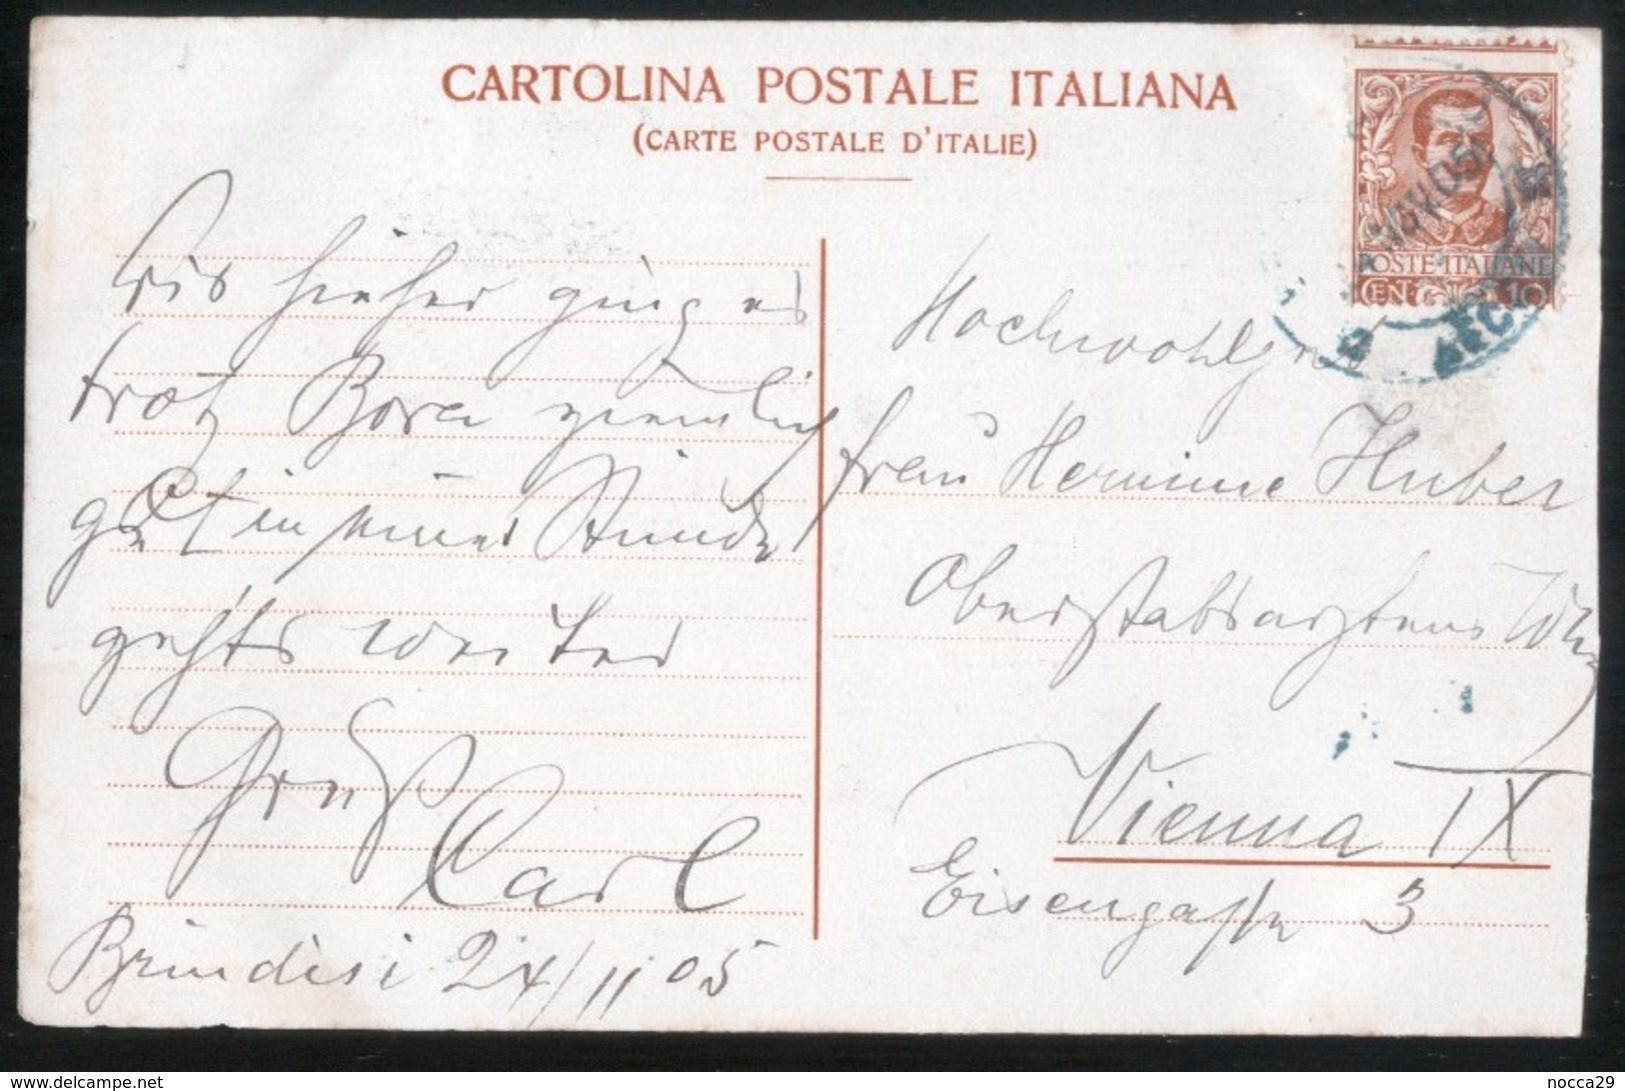 CARTOLINA POSTALE ITALIANA
(CARTE POSTALE D'ITALIE)
POSTE ITALIANE
CEN. 10
Bis hieher ging es
trotz Bora ziemlich
gut in einer Stunde
gehts weiter
Gruß
Carl
Brindisi 24/11 05
Hochwohlgeb
Frau Hermine Huber
Oberstabsarztens
Vienna IX
Eisengasse 3
www.delcampe.net
nocca29